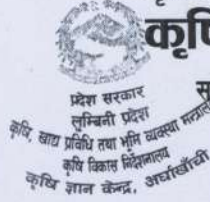 कृषि
प्रदेश सरकार
लुम्बिनी प्रदेश
कृषि, खाद्य प्रविधि तथा भूमि व्यवस्था मन्त्रालय
कृषि विकास निर्देशनालय
कृषि ज्ञान केन्द्र, अर्घाखाँची